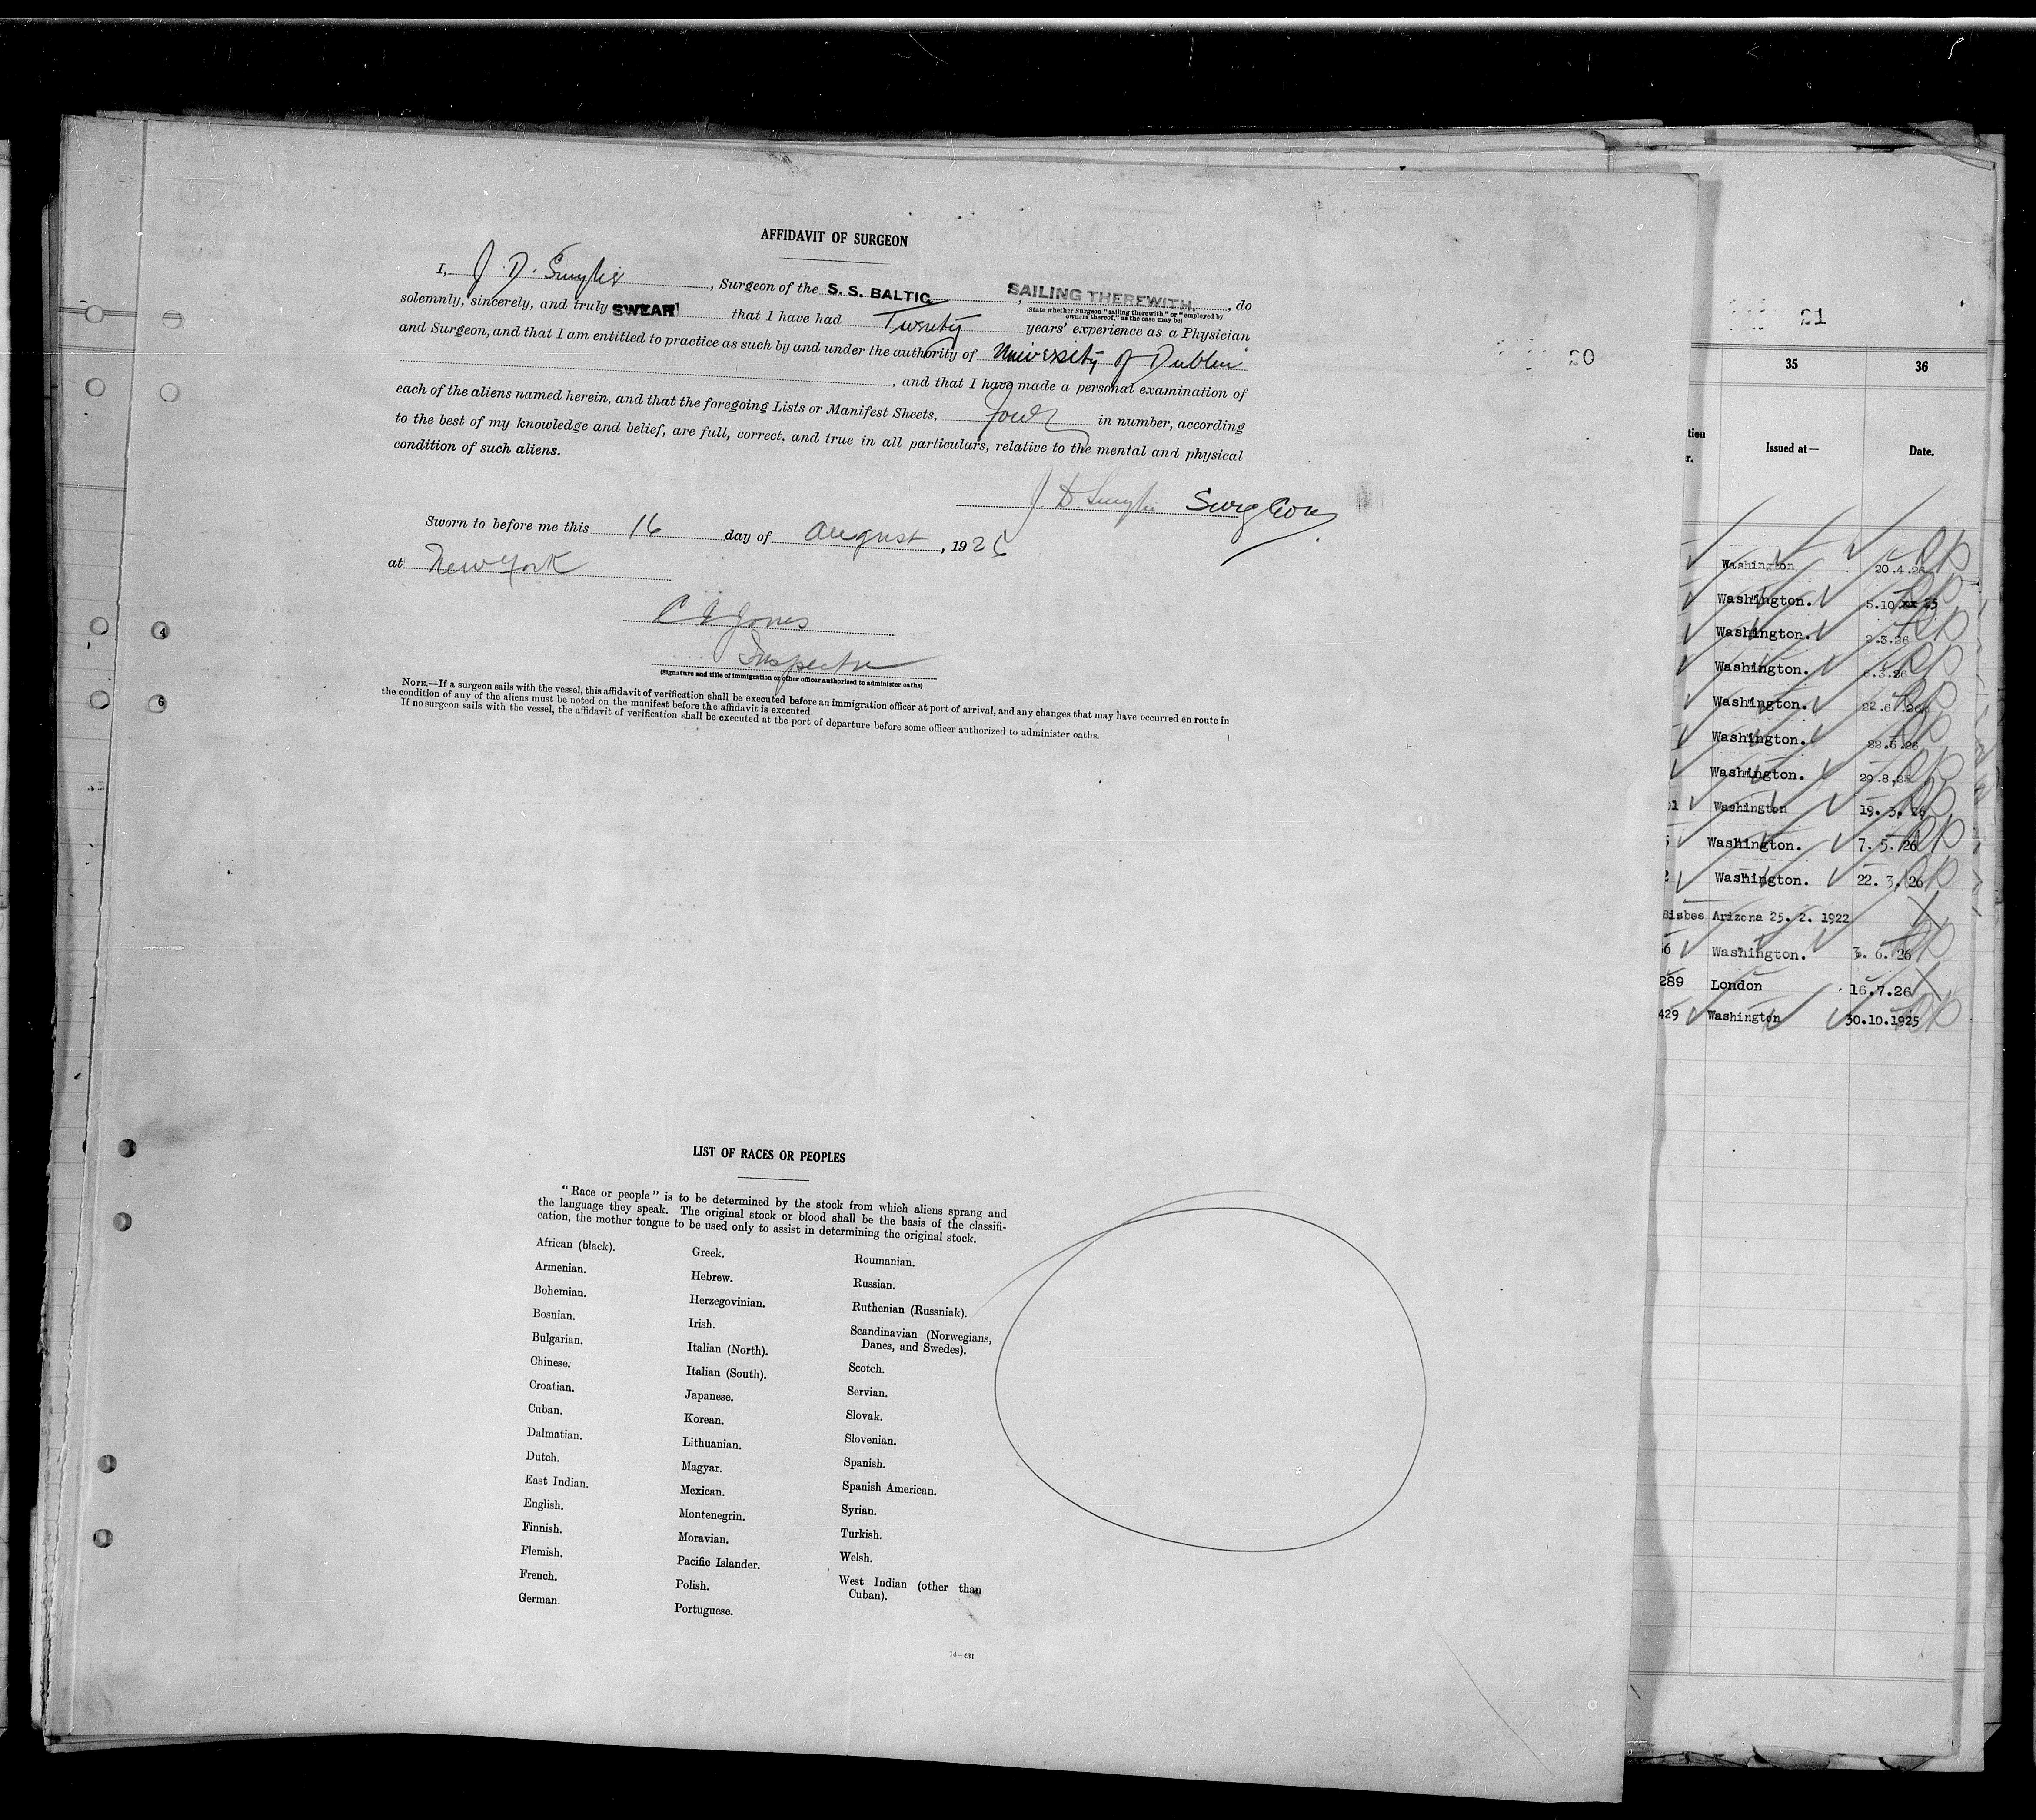 AFFIDAVIT OF SURGEON
I, J. D. Smylie, Surgeon of the S. S. BALTIC, SAILING THEREWITH, do
(State whether Surgeon "sailing therewith" or "employed by
owners thereof," as the case may be)
solemnly, sincerely, and truly SWEAR that I have had Twenty years' experience as a Physician
and Surgeon, and that I am entitled to practice as such by and under the authority of University of Dublin
, and that I have made a personal examination of
each of the aliens named herein, and that the foregoing Lists or Manifest Sheets, four in number, according
to the best of my knowledge and belief, are full, correct, and true in all particulars, relative to the mental and physical
condition of such aliens.
J D Smylie Surgeon
Sworn to before me this 16 day of August, 1926
at New York
Jones
Inspector
(Signature and title of immigration or other officer authorized to administer oaths)
NOTE.—If a surgeon sails with the vessel, this affidavit of verification shall be executed before an immigration officer at port of arrival, and any changes that may have occurred en route in
the condition of any of the aliens must be noted on the manifest before the affidavit is executed.
If no surgeon sails with the vessel, the affidavit of verification shall be executed at the port of departure before some officer authorized to administer oaths.
4
6
LIST OF RACES OR PEOPLES
"Race or people" is to be determined by the stock from which aliens sprang and
the language they speak. The original stock or blood shall be the basis of the classifi-
cation, the mother tongue to be used only to assist in determining the original stock.
African (black).
Armenian.
Bohemian.
Bosnian.
Bulgarian.
Chinese.
Croatian.
Cuban.
Dalmatian.
Dutch.
East Indian.
English.
Finnish.
Flemish.
French.
German.
Greek.
Hebrew.
Herzegovinian.
Irish.
Italian (North).
Italian (South).
Japanese.
Korean.
Lithuanian.
Magyar.
Mexican.
Montenegrin.
Moravian.
Pacific Islander.
Polish.
Portuguese.
Roumanian.
Russian.
Ruthenian (Russniak).
Scandinavian (Norwegians,
Danes, and Swedes).
Scotch.
Servian.
Slovak.
Slovenian.
Spanish.
Spanish American.
Syrian.
Turkish.
Welsh.
West Indian (other than
Cuban).
20
21
35 36
tion
r. Issued at— Date.
Washington 20.4.26
Washington. 5.10.xx 25
Washington.
Washington.
Washington.
Washington.
Washington.
Washington 19. 3. 26
Washington. 7. 5. 26
Washington. 22. 3. 26
Bisbee Arizona 25. 2. 1922
Washington. 3. 6. 26
289 London 16.7.26
429 Washington 30.10.1925